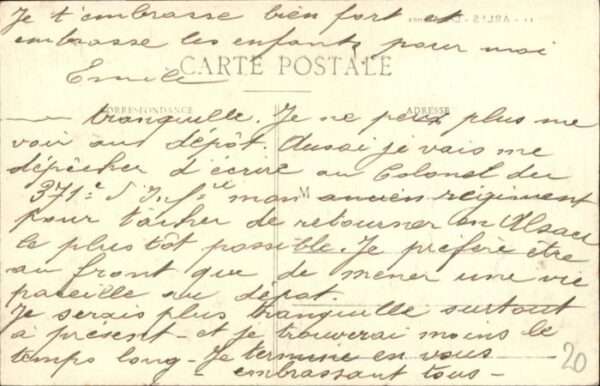 Je t'embrasse bien fort et
embrasse les enfants pour moi
Emile
CARTE POSTALE
CORRESPONDANCE
ADRESSE
tranquille. Je ne peux plus me
voir au dépôt. Aussi je vais me
dépêcher d'écrire au Colonel du
371e d'I.f.ie mon ancien régiment
M
pour tâcher de retourner en Alsace
le plus tôt possible. Je préfère être
au front que de mener une vie
pareille au dépôt.
Je serais plus tranquille surtout
à présent - et je trouverai moins le
temps long - Je termine en vous
embrassant tous -
20